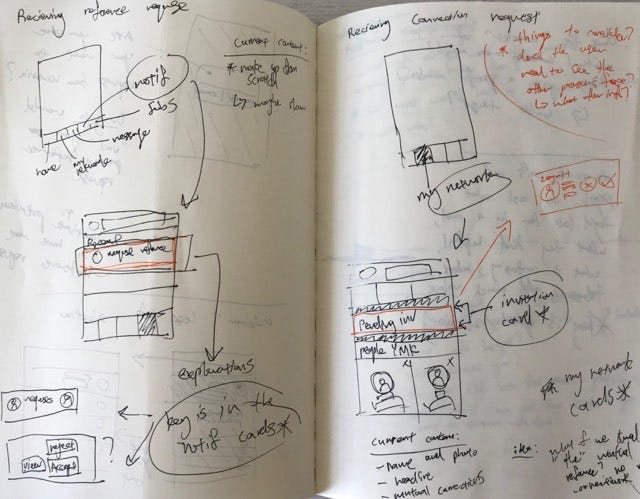 Recieving reference request
Current content:
* make up from
scratch
↳ maybe
notif
jobs
message
my
network
home
request reference
explorations
key is in the
notif cards *
request
?
reject
view
Accept
Recieving Connection request
things to consider?
* does the user
need to see the
other persons face?
↳ what other info?
my network
pending inv
people YMK
x
x
invitation
card *
my network
cards *
current content:
- name and photo
- headline
- mutual connections
idea: what if we
"the" mutual
reference? no